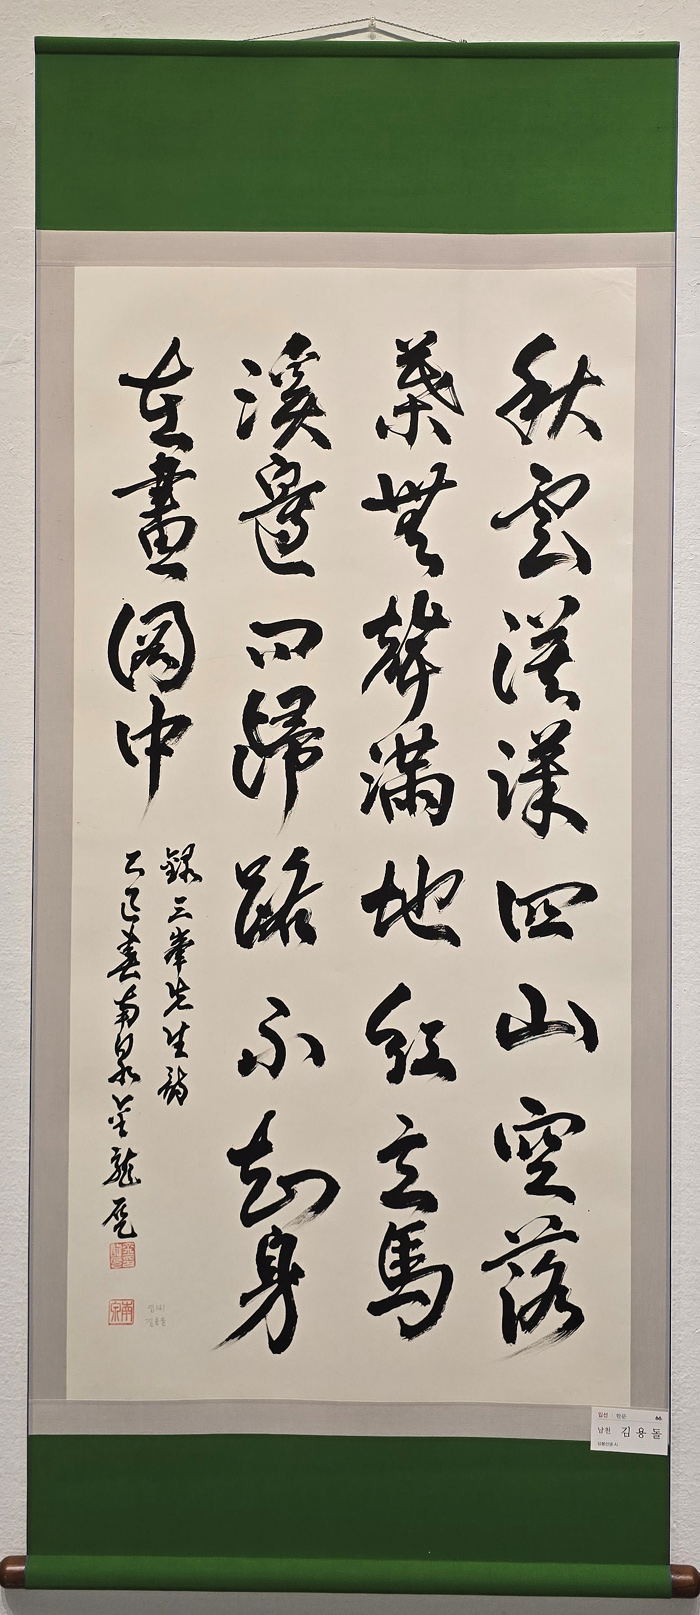 秋雲漠漠四山空落
葉無聲滿地紅立馬
溪邊問歸路不知身
在畫圖中
錄三峯先生詩
乙巳春南泉金龍乭
입선 한문 66
남천 김용돌
삼봉선생 시